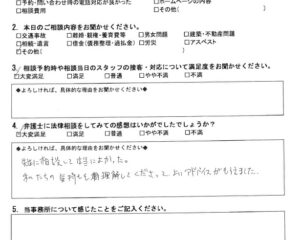 □予約・問い合わせ時の電話対応が良かった □ホームページの内容
□相談費用 □その他(
2. 本日のご相談内容をお聞かせください。
□交通事故 □離婚・親権・養育費等 □男女問題 □建築・不動産問題
□相続・遺言 □借金(債務整理・過払金) □労災 □アスベスト
□その他( )
3. 相談予約時や相談当日のスタッフの接客・対応について満足度をお聞かせください。
☑大変満足 □満足 □普通 □やや不満 □不満
◆よろしければ、具体的な理由をお聞かせください◆
4. 弁護士に法律相談をしてみての感想はいかがでしたでしょうか?
☑大変満足 □満足 □普通 □やや不満 □不満
◆よろしければ、具体的な理由をお聞かせください◆
相談して
私たちの気持ちも理解してくださって、よいアドバイスがもらえました。
5. 当事務所について感じたことをご記入ください。